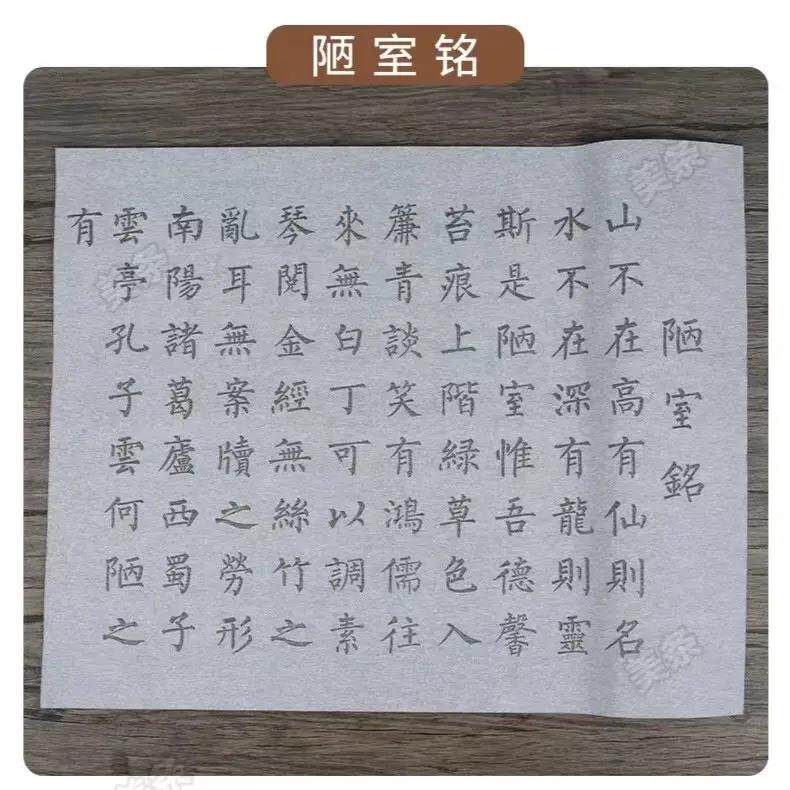 陋室铭
陋室銘
山不在高有仙則名
水不在深有龍則靈
斯是陋室惟吾德馨
苔痕上階緑草色入
簾青談笑有鴻儒往
來無白丁可以調素
琴閱金經無絲竹之
亂耳無案牘之勞形
南陽諸葛廬西蜀子
雲亭孔子雲何陋之
有
美家
美家
美家